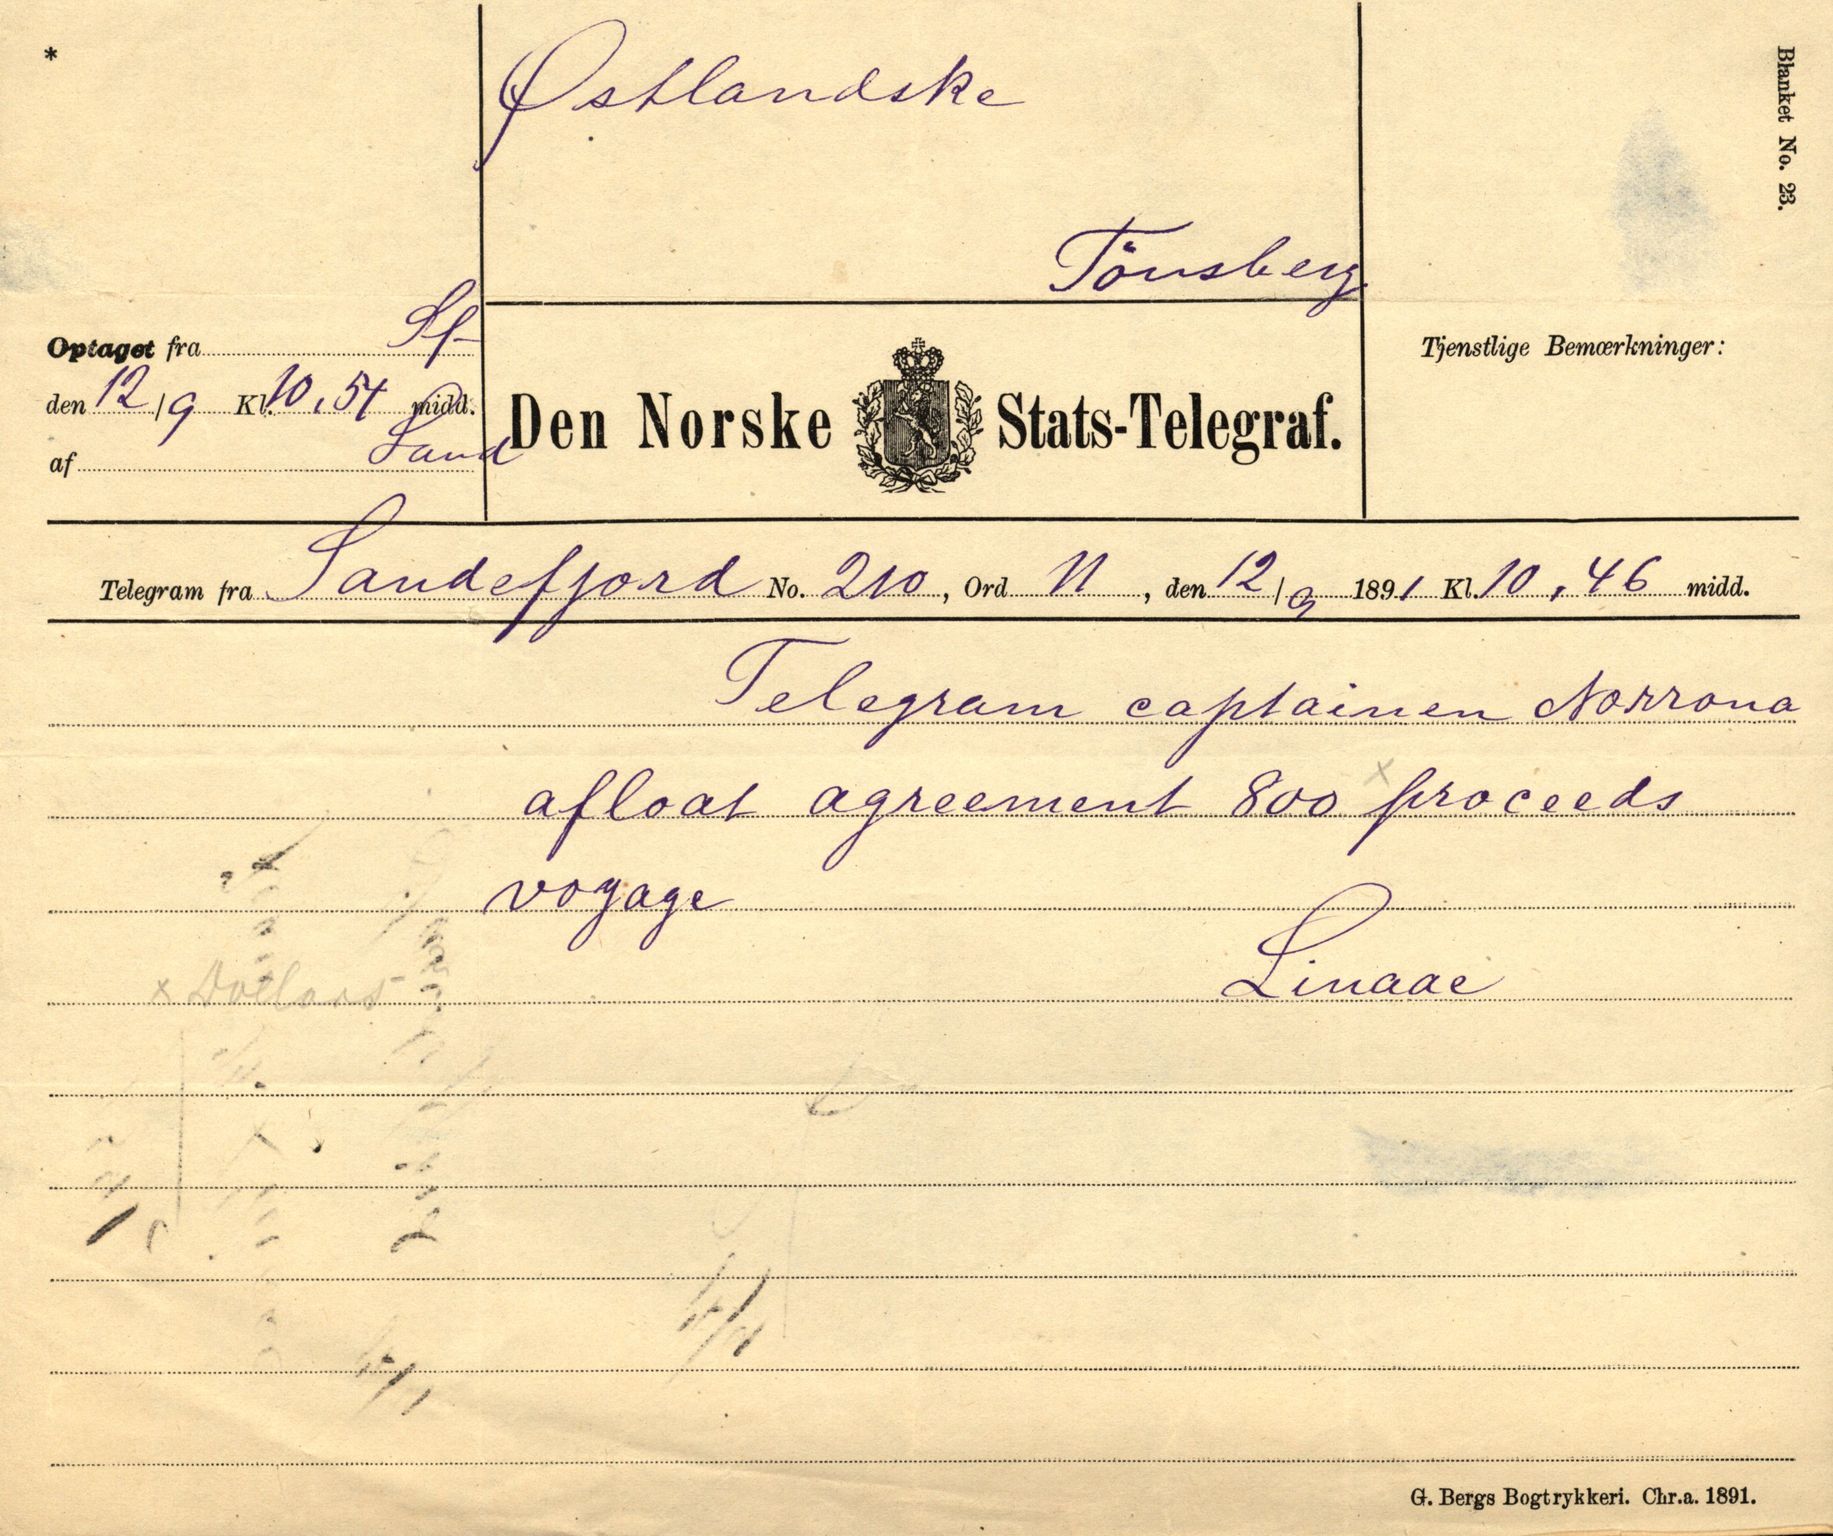 *
Østlandske
Tönsberg
Blanket No. 23.
Optaget fra Sf
den 12/9 Kl. 10,54 midd.
af Sand
Den Norske Stats-Telegraf.
Tjenstlige Bemœrkninger:
Telegram fra Sandefjord No. 210, Ord 11, den 12/9 1891 Kl. 10,46 midd.
Telegram captainen Norrona
afloat agreement 800 x proceeds
voyage
Linaae
x Dollars
G. Bergs Bogtrykkeri. Chr.a. 1891.